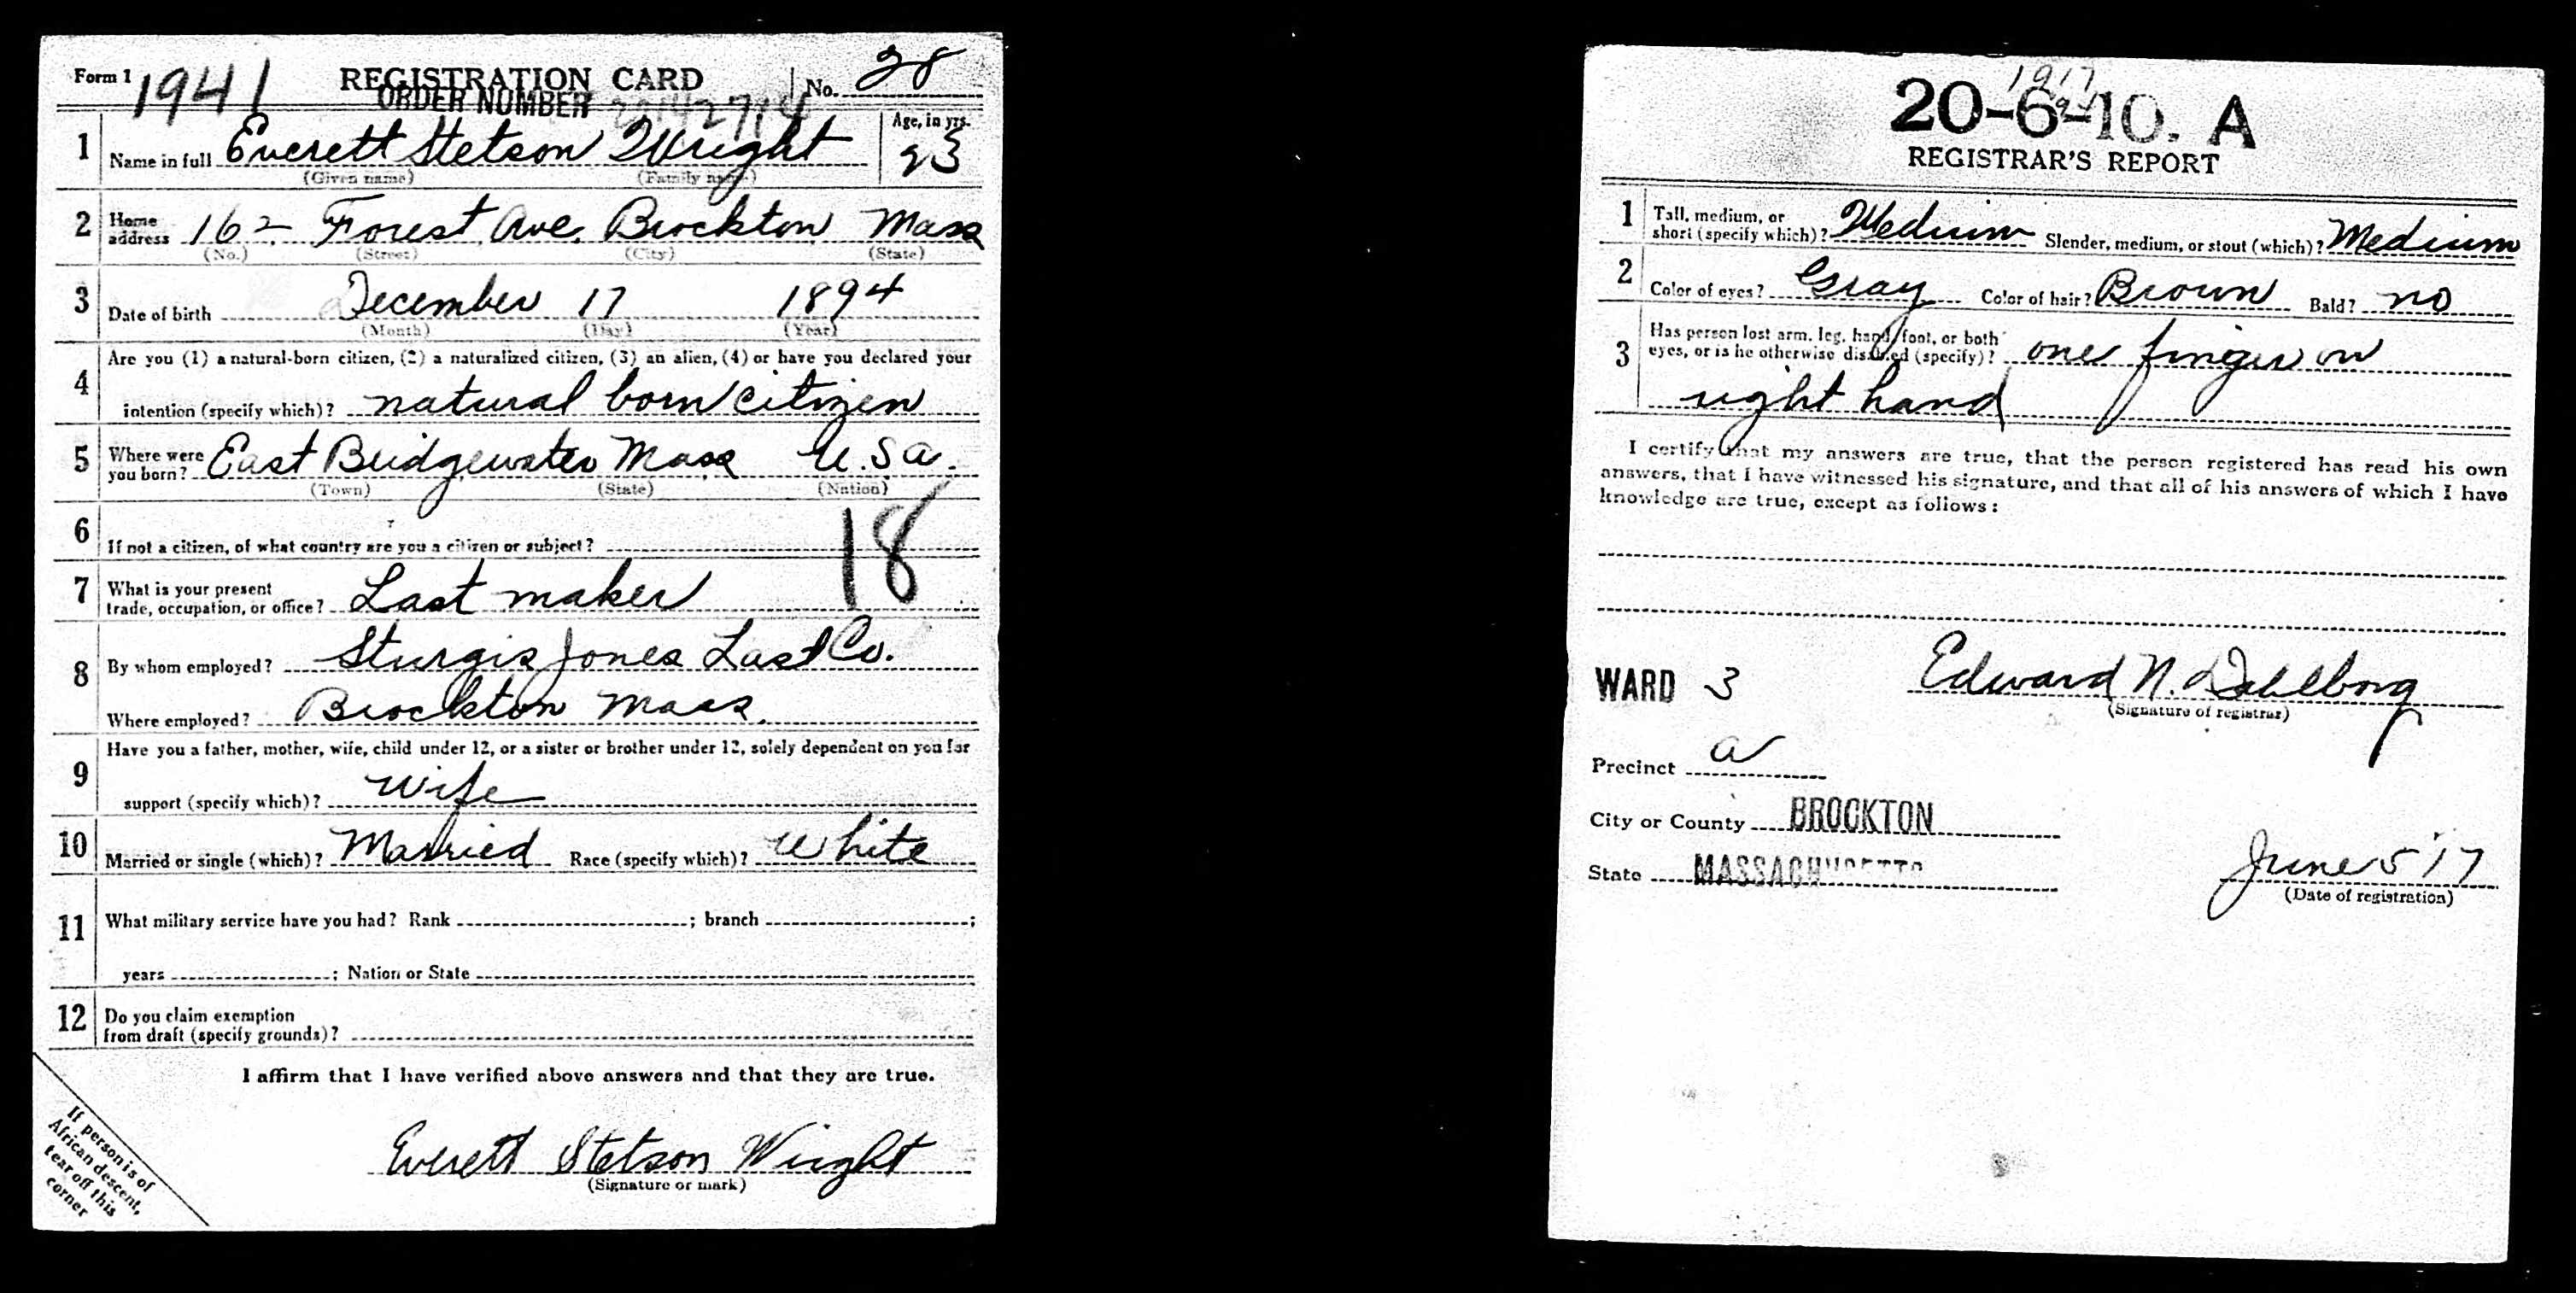 Form 1 1941 REGISTRATION CARD No. 28
ORDER NUMBER
1 Name in full Everett Stetson Wright Age, in yrs. 23
(Given name) (Family name)
2 Home address 162 Forest Ave. Brockton Mass
(No.) (Street) (City) (State)
3 Date of birth December 17 1894
(Month) (Day) (Year)
4 Are you (1) a natural-born citizen, (2) a naturalized citizen, (3) an alien, (4) or have you declared your
intention (specify which)? natural born citizen
5 Where were you born? East Bridgewater Mass U.S.a.
(Town) (State) (Nation)
18
6 If not a citizen, of what country are you a citizen or subject?
7 What is your present
trade, occupation, or office? Last maker
8 By whom employed? Sturgis Jones Last Co.
Where employed? Brockton Mass.
9 Have you a father, mother, wife, child under 12, or a sister or brother under 12, solely dependent on you for
support (specify which)? wife
10 Married or single (which)? Married Race (specify which)? White
11 What military service have you had? Rank ; branch ;
years ; Nation or State
12 Do you claim exemption
from draft (specify grounds)?
I affirm that I have verified above answers and that they are true.
Everett Stetson Wright
(Signature or mark)
If person is of
African descent,
tear off this
corner
20-6-10. A
REGISTRAR'S REPORT
1 Tall, medium, or
short (specify which)? Medium Slender, medium, or stout (which)? Medium
2 Color of eyes? Gray Color of hair? Brown Bald? no
3 Has person lost arm, leg, hand, foot, or both
eyes, or is he otherwise disabled (specify)? one finger on
right hand
I certify that my answers are true, that the person registered has read his own
answers, that I have witnessed his signature, and that all of his answers of which I have
knowledge are true, except as follows:
WARD 3 Edward N. Dahlborg
(Signature of registrar)
Precinct a
City or County BROCKTON
State MASSACHUSETTS June 5 '17
(Date of registration)